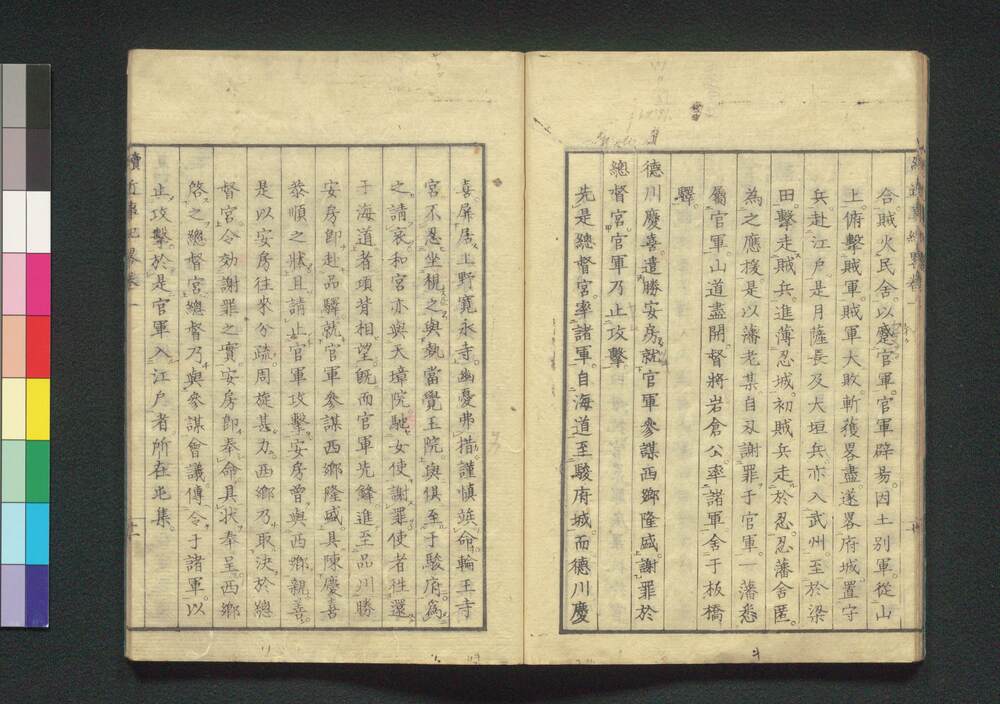 合賊火民舍以蹙官軍官軍辟易因土別軍從山
上俯擊賊軍賊軍大敗斬獲畧盡遂畧府城置守
兵赴江戶是月薩長及大垣兵亦入武州至於梁
田擊走賊兵進薄忍城初賊兵走於忍忍藩舍匿
為之應援是以藩老某自刃謝罪于官軍一藩悉
屬官軍山道盡開督將岩倉公率諸軍舍于板橋
驛
德川慶喜遣勝安房就官軍參謀西鄉隆盛謝罪於
總督宮官軍乃止攻擊
先是總督宮率諸軍自海道至駿府城而德川慶
喜屏居上野寬永寺幽憂弗措謹慎竢命輪王寺
宮不忍坐視之與執當覺王院與俱至于駿府為
之請哀和宮亦與天璋院馳女使謝罪使者往還
于海道者項背相望既而官軍先鋒進至品川勝
安房卽赴品驛就官軍參謀西鄉隆盛具陳慶喜
恭順之狀且請止官軍攻擊安房曾與西鄉親喜
是以安房往來分疏周旋甚力西鄉乃取決於總
督宮令効謝罪之實安房卽奉命具狀奉呈西鄉
啓之總督宮總督乃與參謀會議傳令于諸軍以
止攻擊於是官軍入江戶者所在屯集
續近事紀畧卷一